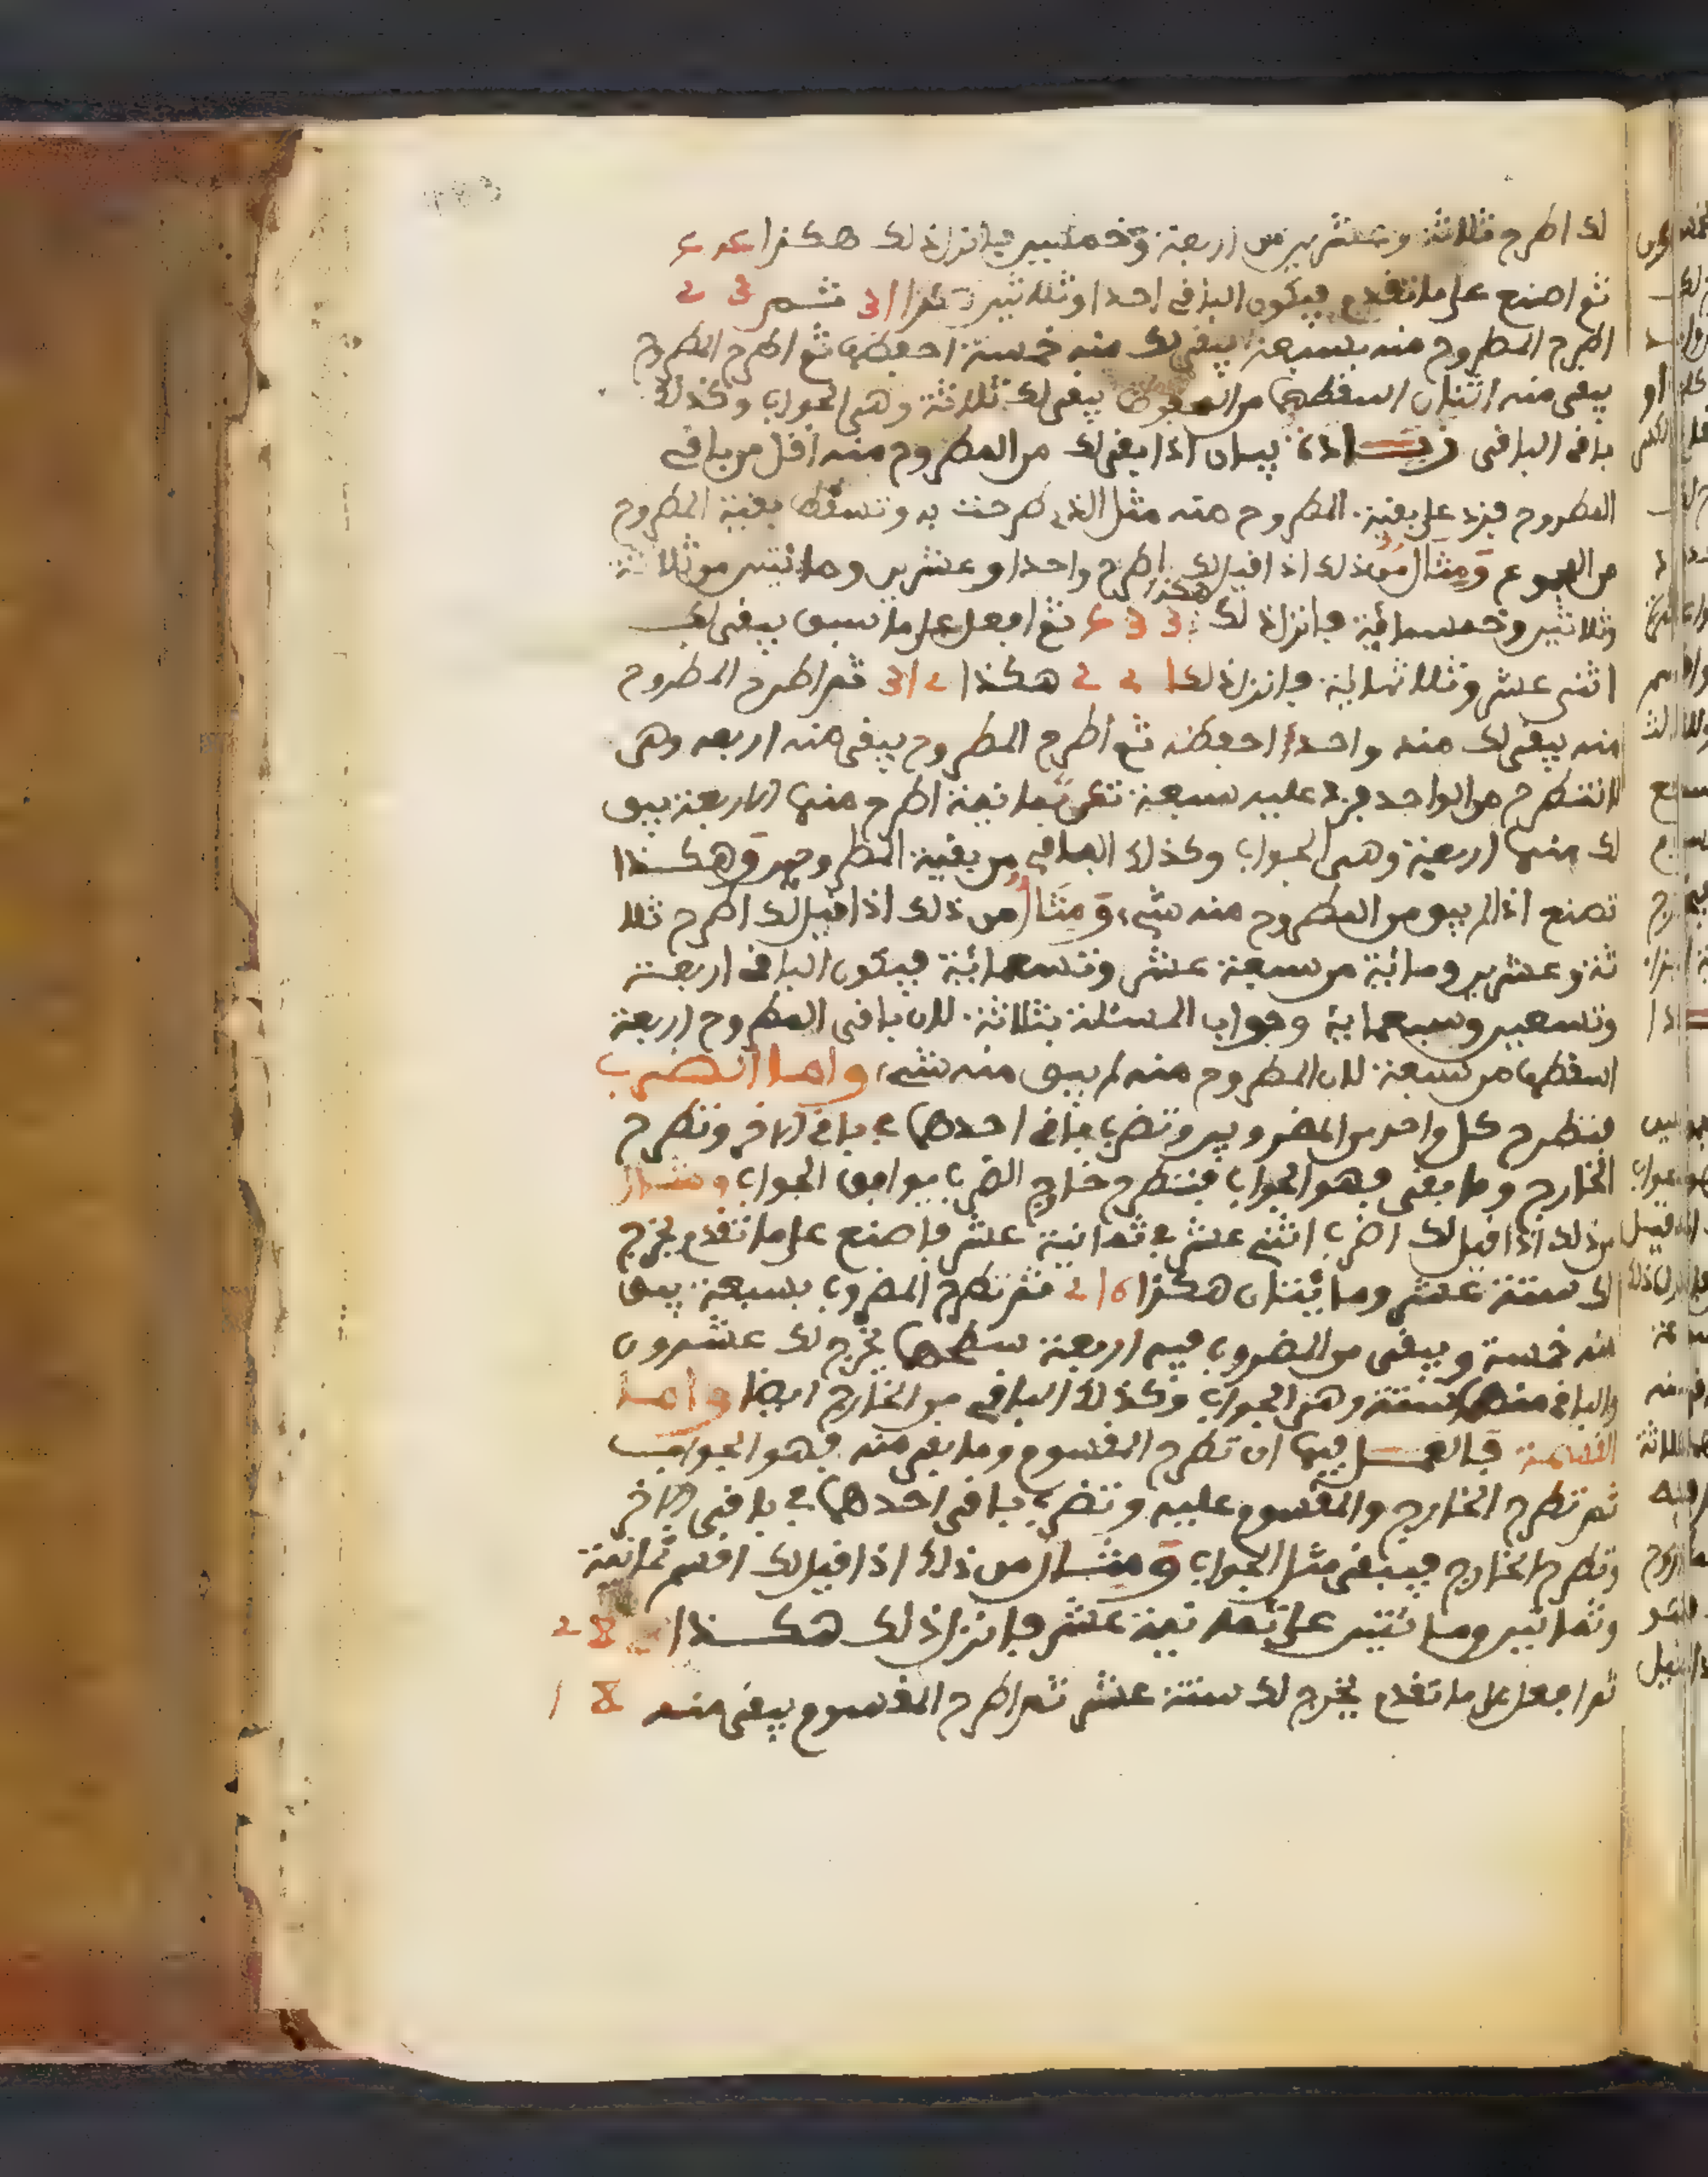 لك اطرح ثلاثة وعشرين من اربعة وخمسين فانزل ذلك هكذا
ثم اصنع على ما تقدم فيكون الباقي احدا وثلاثين هكذا 31 ثم 3 2
اطرح المطروح منه بسبعة يبقى لك منه خمسة احفظها ثم اطرح المطروح
يبقى منه اثنان اسقطها من يبقى لك ثلاثة وهي الجواب وكذلك
باقي الباقي زيادة بيان اذا بقي لك من المطروح منه اقل من باقي
المطروح فزد على بقية المطروح منه مثل الذي طرحت به وتسقط بقية المطروح
من المجموع ومثال من ذلك اذا قيل لك اطرح واحدا وعشرين ومائتين من ثلاثة
وثلاثين وخمسمائة فانزل ذلك هكذا ثم افعل على ما سبق يبقى لك
اثنى عشر وثلاثمائة فانزل ذلك 1 2 2 هكذا 2 1 3 ثم اطرح المطروح
منه يبقى لك منه واحدا احفظه ثم اطرح المطروح يبقى منه اربعه وهي
لا تنطرح من الواحد فزد عليه سبعة تكن ثمانية اطرح منها الاربعة يبق
لك منها اربعة وهي الجواب وكذلك الباقي من بقية المطروح وهكذا
تصنع اذا لم يبق من المطروح منه شيء ومثال من ذلك اذا قيل لك اطرح ثلا
ثة وعشرين ومائة من سبعة عشر وتسعمائة فيكون الباقي اربعة
وتسعين وسبعماية وجواب المسئلة بثلاثة لان باقي المطروح اربعة
اسقطها من سبعة لان المطروح منه لم يبق منه شيء واما الضرب
فتطرح كل واحد من المضروبين وتضرب باقي احدهما في باقي الاخر وتطرح
الخارج وما بقي فهو الجواب فتطرح خارج الضرب يوافق الجواب ومثال
من ذلك اذا قيل لك اضرب اثنى عشر في ثمانية عشر فاصنع على ما تقدم يخرج
لك ستة عشر ومائتان هكذا 6 1 2 ثم تطرح المضروب بسبعة يبق
منه خمسة ويبقى من المضروب فيه اربعة سطحها يخرج لك عشرون
والباقي منها ستة وهو الجواب وكذلك الباقي من الخارج ايضا واما
القسمة فالعمل فيها ان تطرح المقسوم وما بقي منه فهو الجواب
ثم تطرح الخارج والمقسوم عليه وتضرب باقي احدهما في باقي الاخر
وتطرح الخارج فيبقى مثل الجواب ومثال من ذلك اذا قيل لك اقسم ثمانية
وثمانين ومائتين على ثمانية عشر فانزل ذلك هكذا 8 2
ثم افعل على ما تقدم يخرج لك ستة عشر ثم اطرح المقسوم يبقى منه 8 1